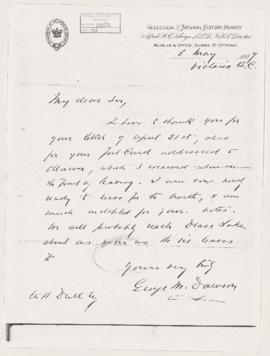 GEOLOGICAL & NATURAL HISTORY SURVEY
Alfred R.C. Selwyn, LL.D. F.R.S. Director
MUSEUM & OFFICE, SUSSEX ST OTTAWA.
6 May 1887
Victoria B.C.
My dear Sir,
I have to thank you for
your letter of April 21st, also
for your Post Card addressed to
Ottawa, which I received when on
the point of leaving. I am now nearly
ready to leave for the north, & am
much indebted for your notes.
We will probably reach Dease Lake
about as soon as the ice leaves
it
Yours very truly
George M. Dawson
W H Dall Esq